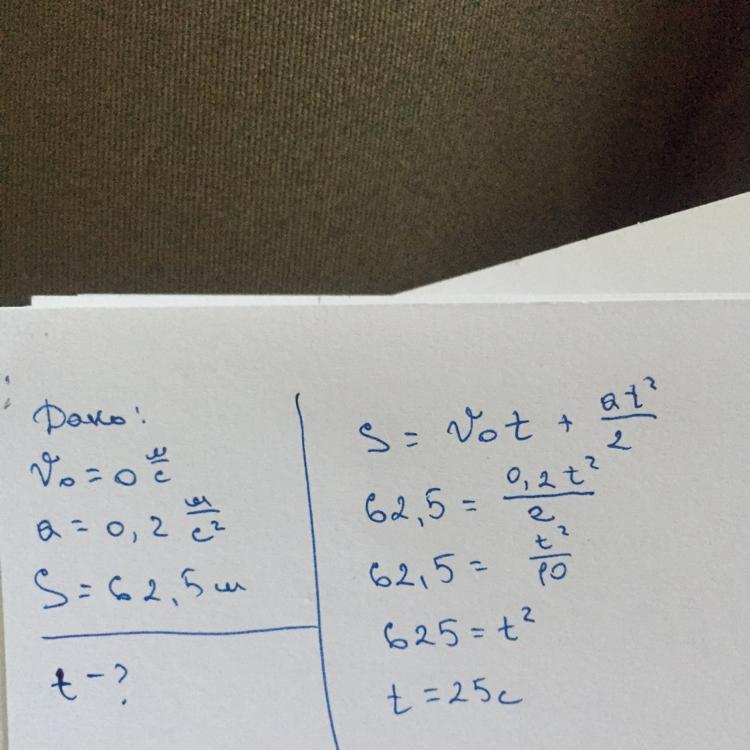 Дано:
v₀ = 0 м/с
a = 0,2 м/с²
S = 62,5 м
t - ?
S = v₀t + at²/2
62,5 = 0,2t²/2
62,5 = t²/10
625 = t²
t = 25 с